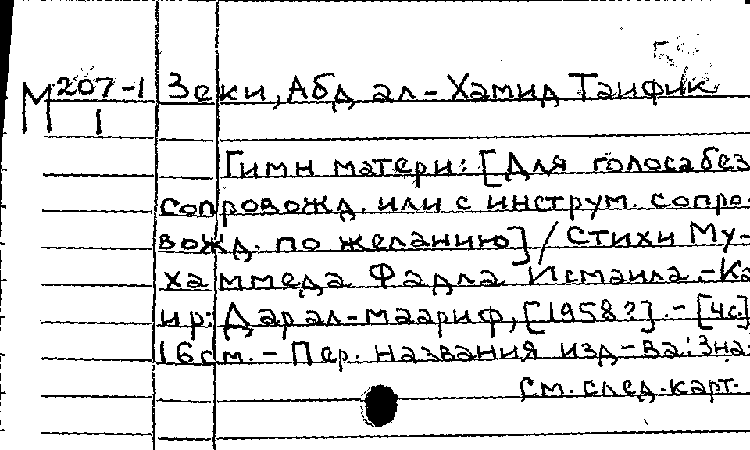 М 207-1 Зеки, Абд ал-Хамид Тауфик
1
Гимн матери: [Для голоса без
сопровожд. или с инструм. сопро-
вожд. по желанию] / Стихи Му-
хаммеда Фадла Исмаила.-Ка
ир: Дар ал-маариф, [1958?].-[4с.]
16см.-Пер. названия изд-ва: Зна-
См. след. карт.